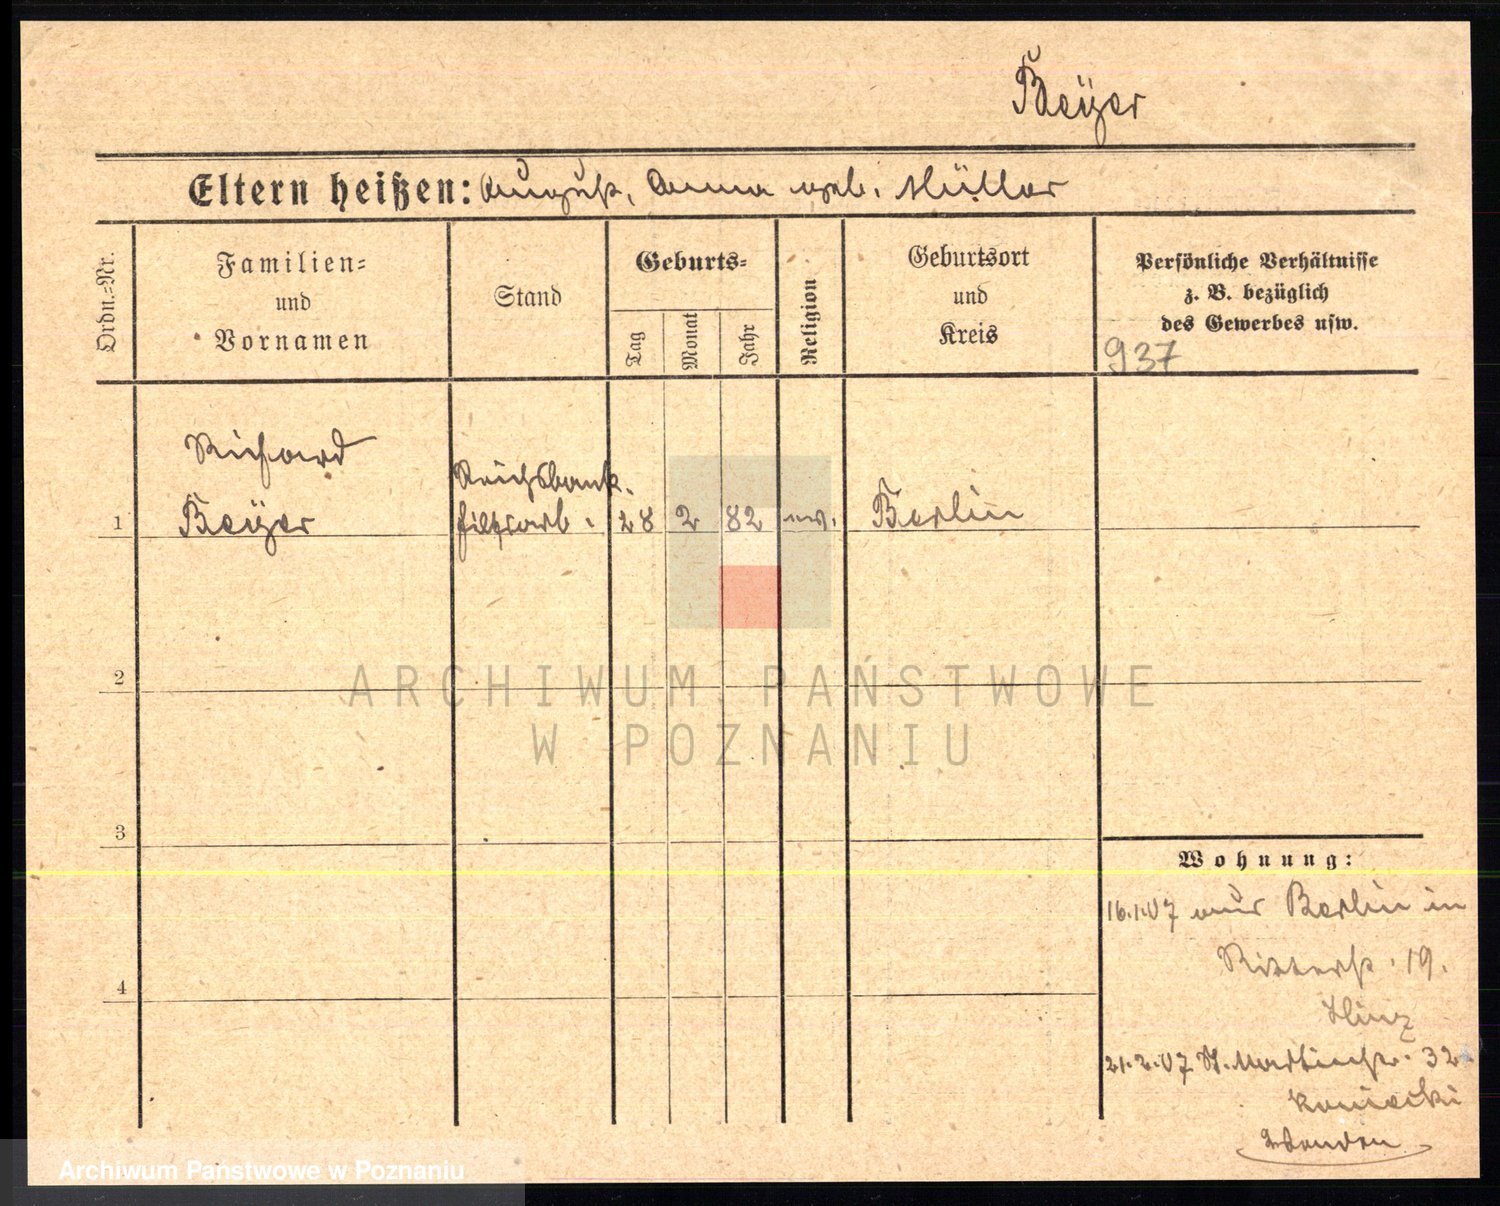 Beÿer
Eltern heißen: August, Anna geb. Müller
Ordn.=Nr.
Familien=
und
Vornamen
Stand
Geburts=
Tag
Monat
Jahr
Religion
Geburtsort
und
Kreis
Persönliche Verhältnisse
z. B. bezüglich
des Gewerbes usw.
937
Richard
Reichsbank.
1 Beÿer hilfsarb. 28 2 82 ev. Berlin
2
3
4
Wohnung:
16.1.07 aus Berlin in
Ritterst. 19.
Hinz
21.2.07 St. Martinstr. 32
ARCHIWUM PAŃSTWOWE
W POZNANIU
Archiwum Państwowe w Poznaniu